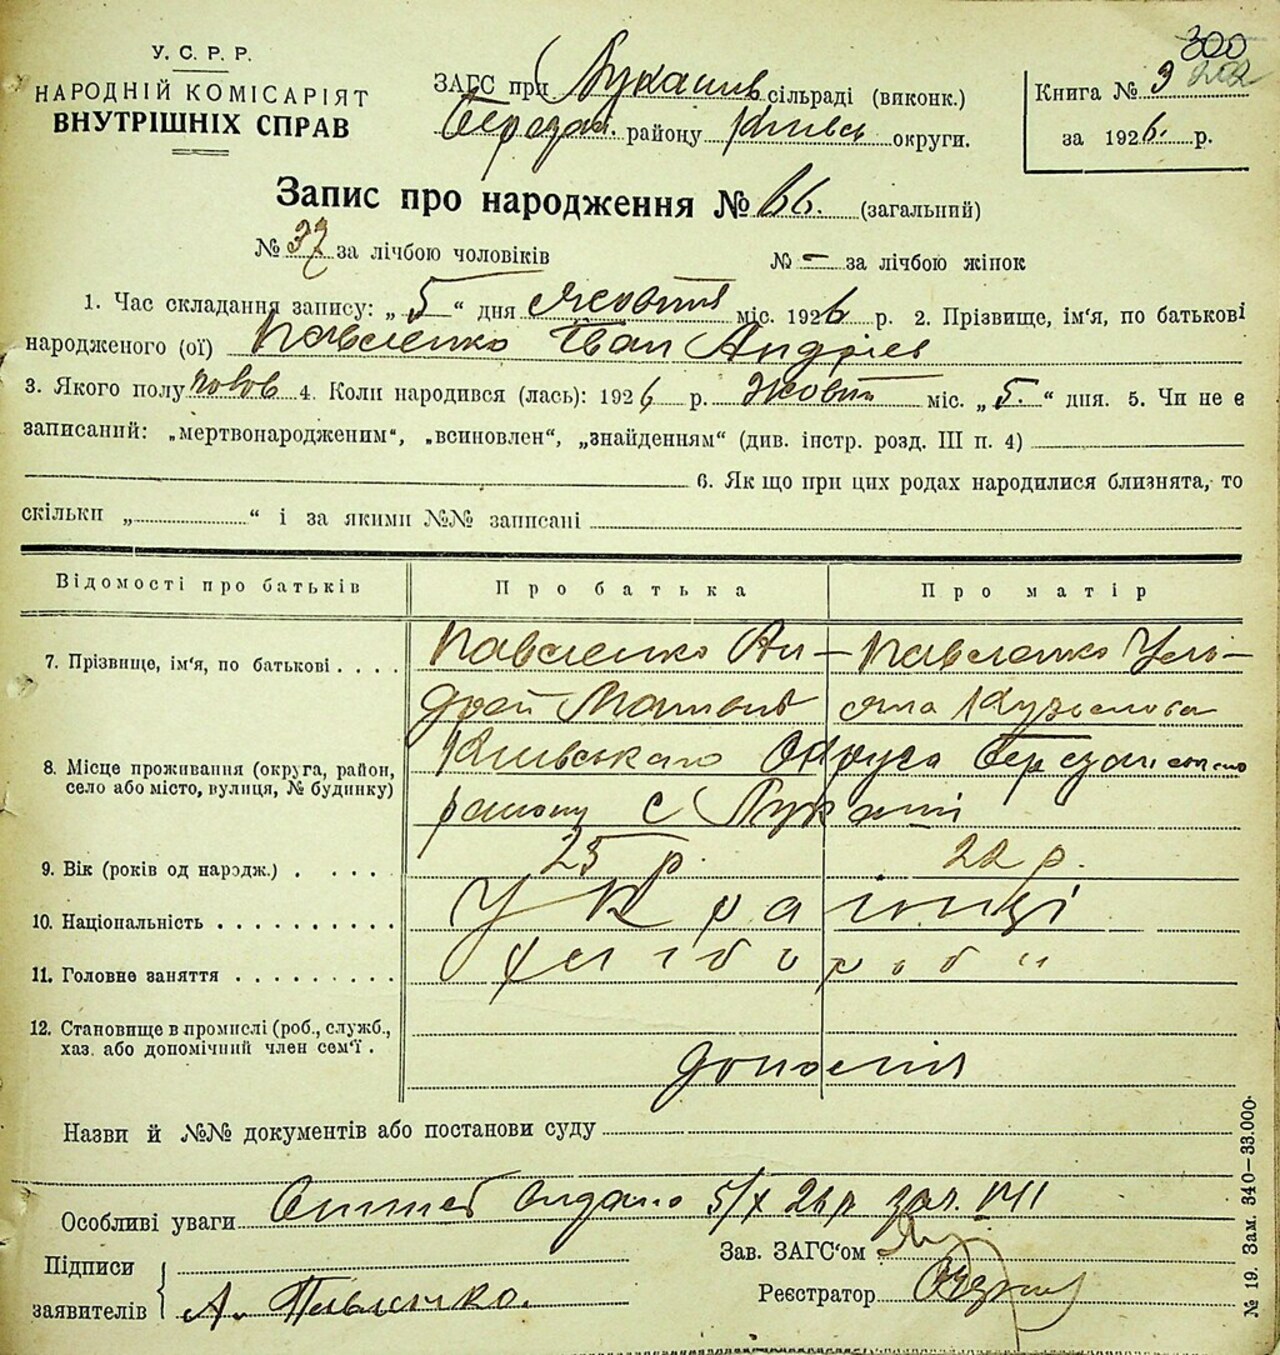 300
202
У. С. Р. Р.
НАРОДНІЙ КОМІСАРІЯТ
ВНУТРІШНІХ СПРАВ
ЗАГС при Лукашив сільраді (виконк.)
Березан. району Київсь округи.
Книга № 3
за 1926. р.
Запис про народження № 66. (загальний)
№ 37 за лічбою чоловіків № – за лічбою жінок
1. Час складання запису: „ 5 “ дня Жовтня міс. 1926 р. 2. Прізвище, ім'я, по батькові
народженого (ої) Павленко Іван Андріев
3. Якого полу човов 4. Коли народився (лась): 1926 р. Жовтн міс. „ 5. “ дня. 5. Чи не є
записаний: „мертвонародженим“, „всиновлен“, „знайденням“ (див. інстр. розд. III п. 4)
6. Як що при цих родах народилися близнята, то
скільки „ “ і за якими №№ записані
Відомості про батьків Про батька Про матір
7. Прізвище, ім'я, по батькові . . . . Павленко Ан– Павленко Улі–
дрей яна
8. Місце проживання (округа, район,
село або місто, вулиця, № будинку)
Київського Округа Березанського
району с Лукаші
9. Вік (років од народж.) . . . . . 25 р. 22 р.
10. Національність . . . . . . . . . . Українці
11. Головне заняття . . . . . . . . . хлібороби
12. Становище в промислі (роб., служб.,
хаз. або допомічний член сем'ї .
Назви й №№ документів або постанови суду
Особливі уваги видано 5/X 26 р
Підписи
заявителів
А. Павленко.
Зав. ЗАГС'ом
Реєстратор
№ 19. Зам. 340–33.000.